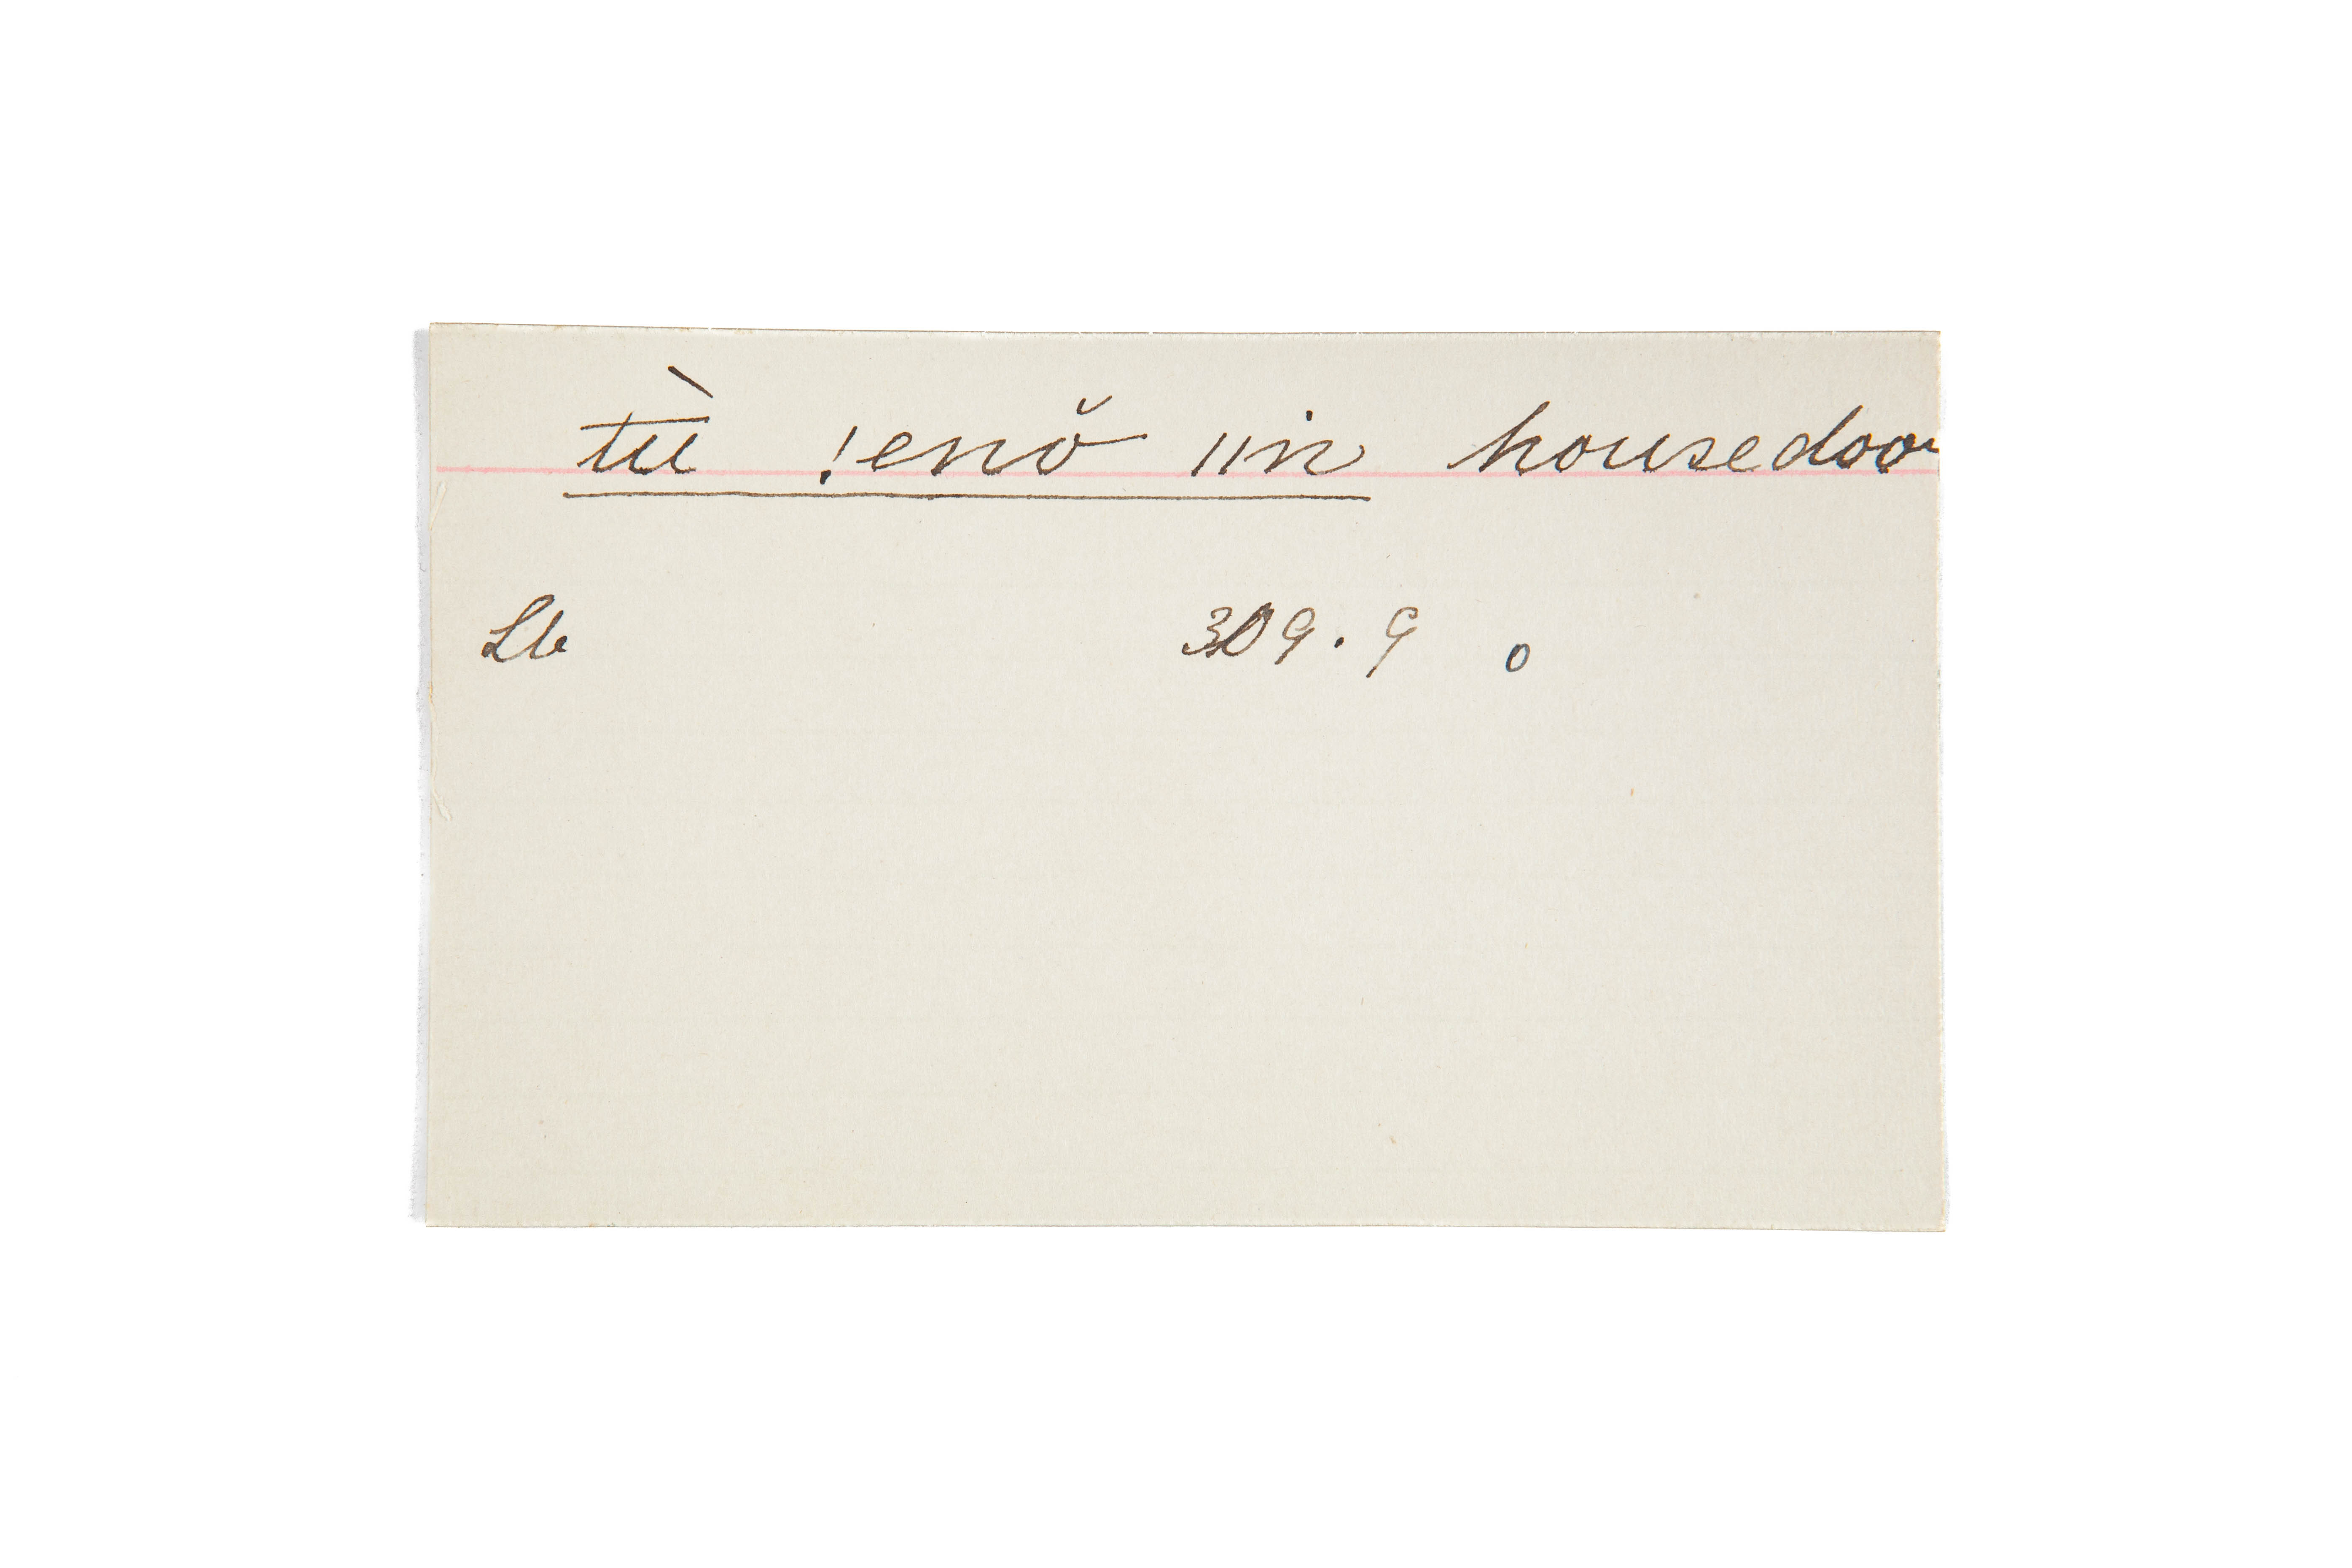 tū̀ !enŏ ||in housedoor
Lb 309.9 o